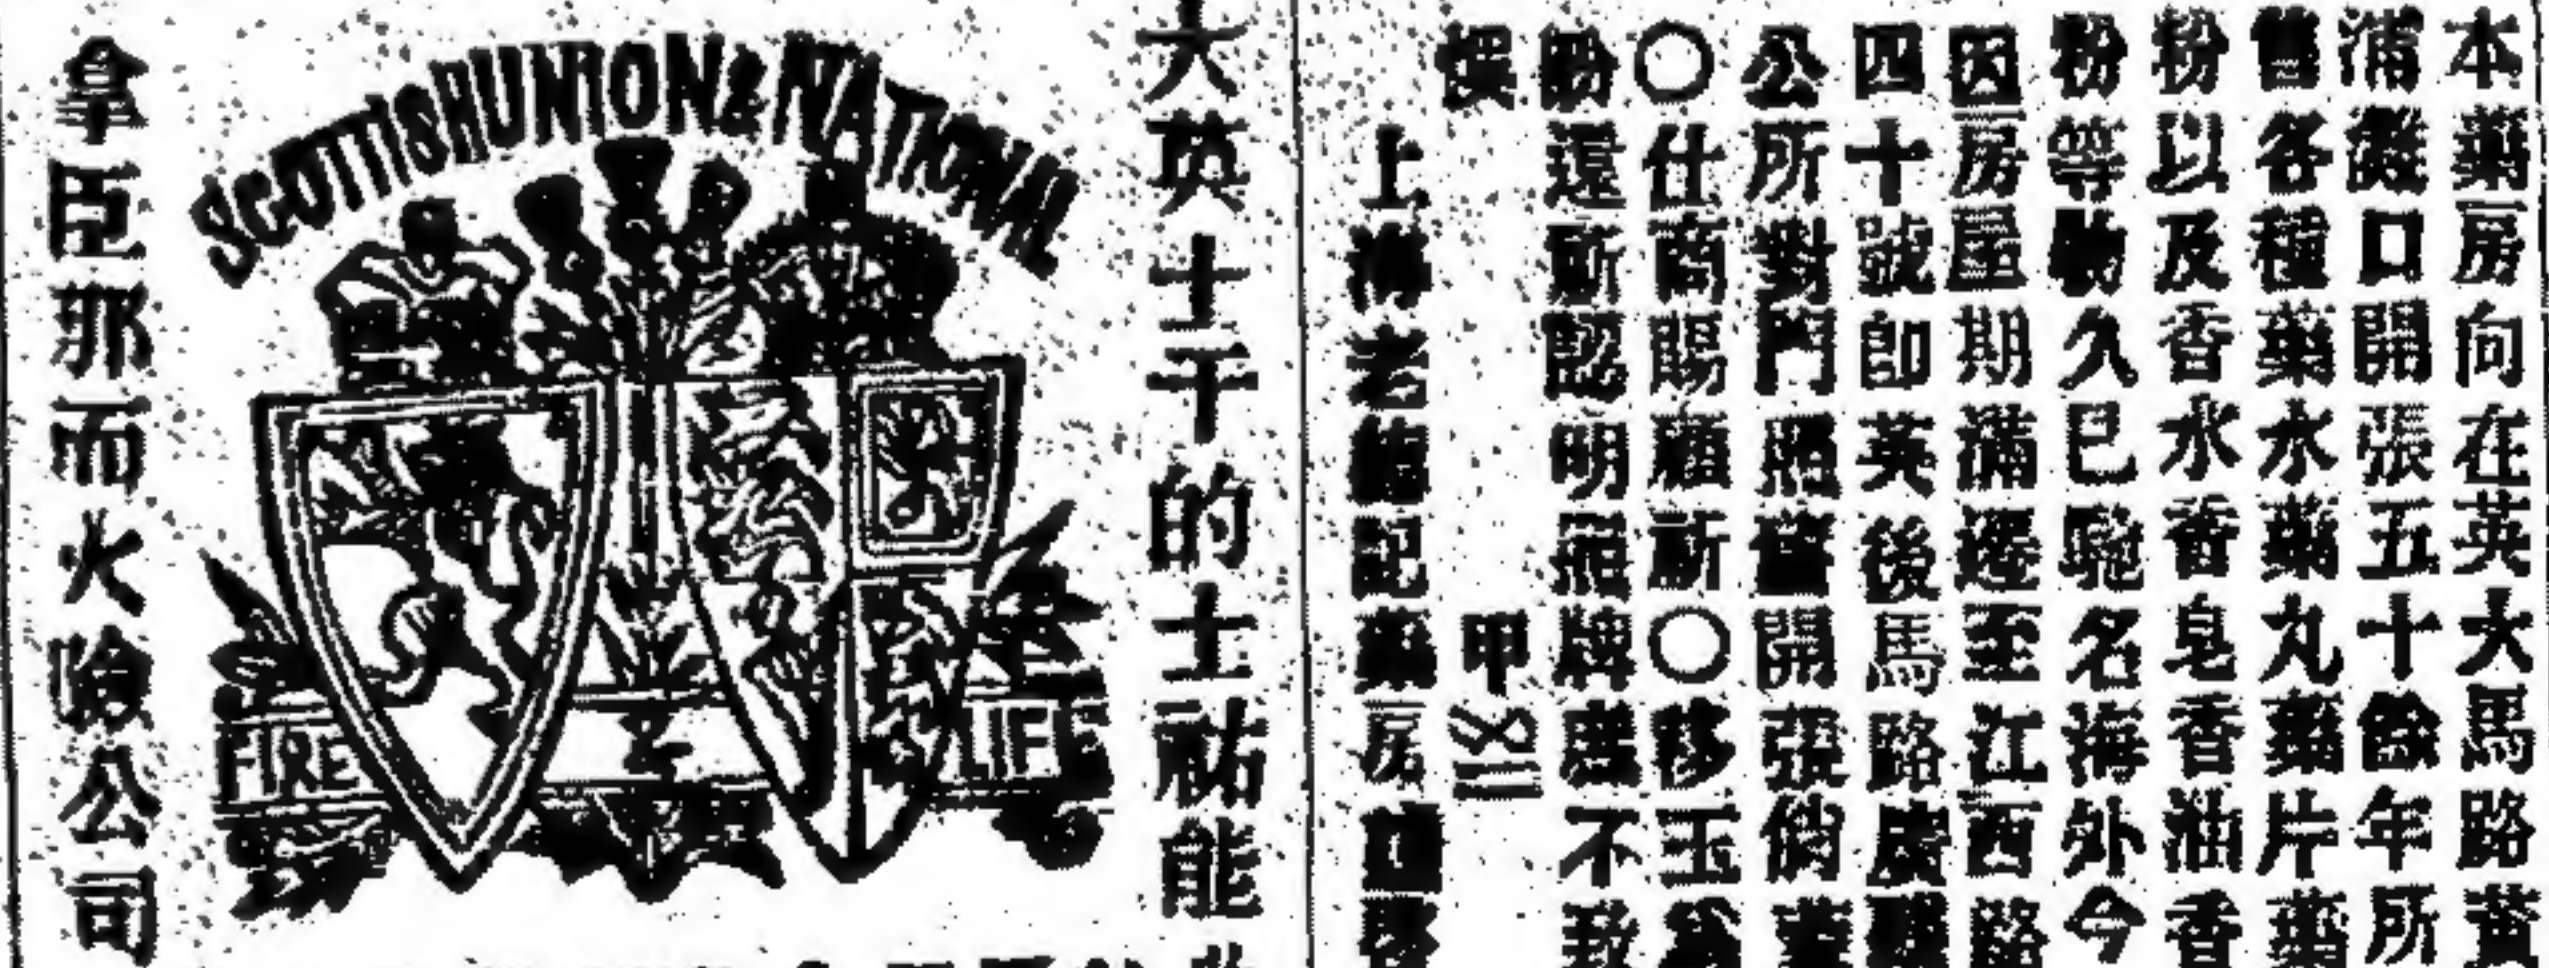 本藥房向在英大馬路黃
浦灘口開張五十餘年所
售各種藥水藥丸藥片藥
粉以及香水香皂香油香
粉等物久已馳名海外今
因房屋期滿遷至江西路
四十號即英後馬路慶
公所對門照舊開張倘蒙
〇仕商賜顧新〇移玉
盼還新認明招牌庶不致
悮 甲
上海老德記藥房
大英士干的士祐能
SCOTTISH UNION & NATIONAL
FIRE
LIFE
拿臣那而火險公司